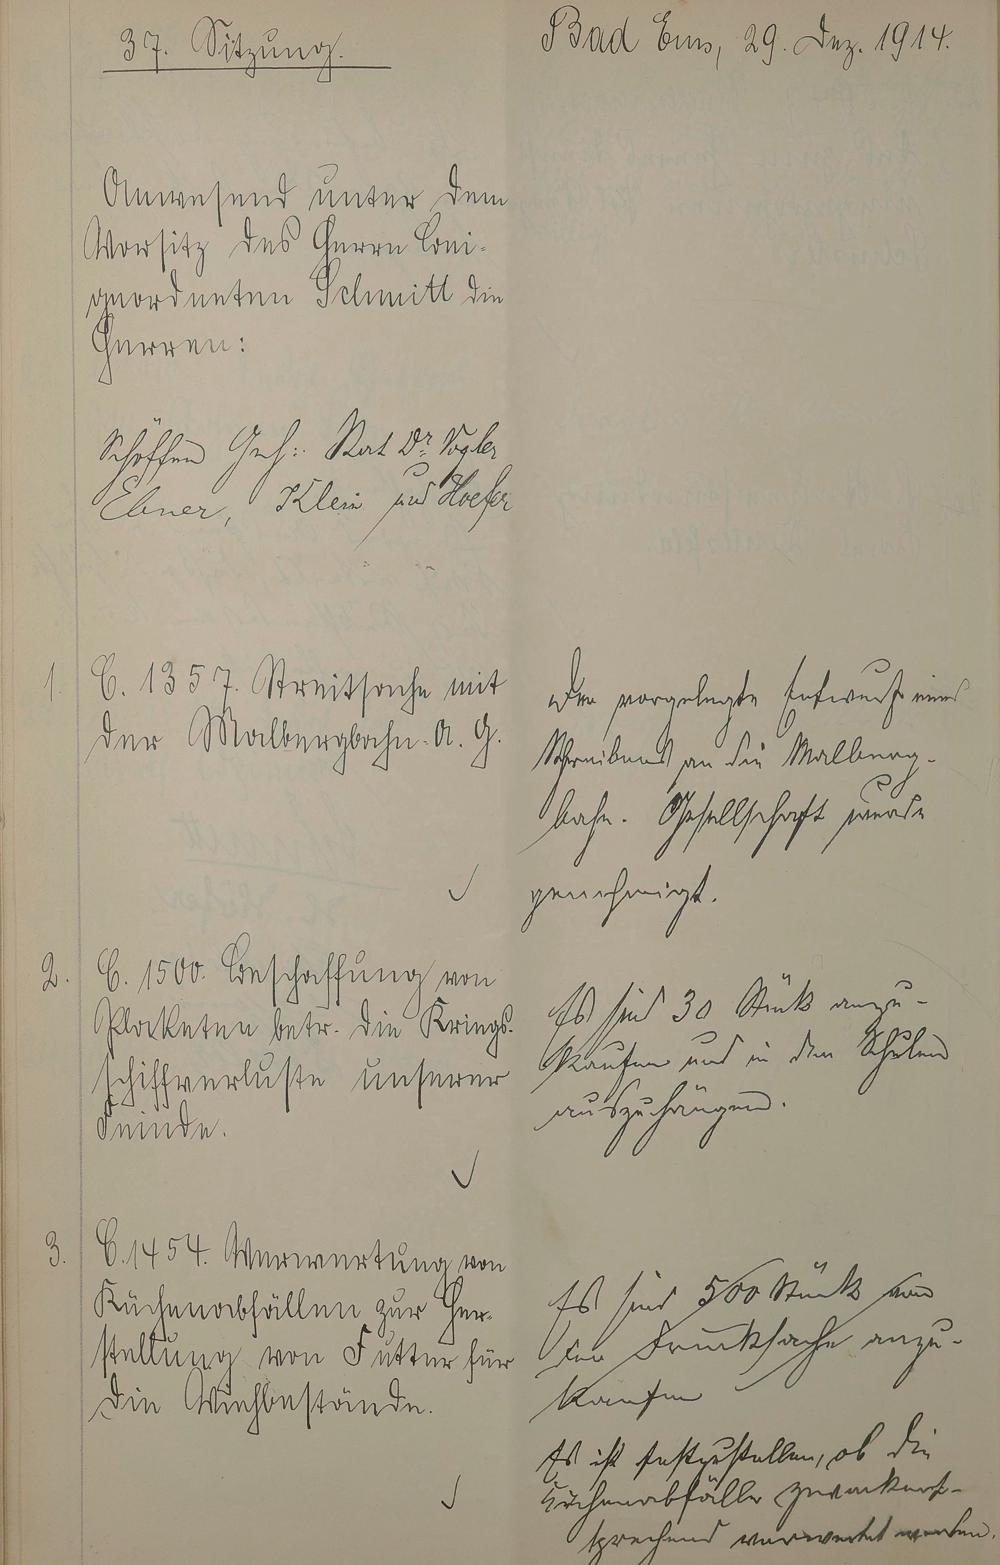 37. Sitzung.
Bad Ems, 29. Dez. 1914.
Anwesend unter dem
Vorsitz des Herrn Bei-
geordneten Schmitt die
Herren:
Schöffen Geh: Rat Dr. Vogler
Ebner, Klein und Hoefer
1. C. 1357. Streitsache mit
der Malbergbahn-A. G.
Der vorgelegte Entwurf eines
Schreibens an die Malberg-
bahn-Gesellschaft wurde
genehmigt.
2. C. 1500. Beschaffung von
Plaketen betr. die Kriegs-
schiffverluste unserer
Feinde.
Es sind 30 Stück anzu-
kaufen und in den Schulen
auszuhängen.
3. C. 1454. Verwertung von
Küchenabfällen zur Her-
stellung von Futter für
die Viehbestände.
Es sind 500 Stück von
der Drucksache anzu-
kaufen
Es ist festzustellen, ob die
Küchenabfälle zweckent-
sprechend verwertet werden.